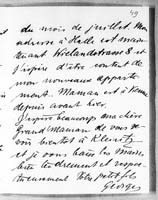 49
du mois de juillet. Mon
adresse à Halle est main-
tenant Wielandstrasse 8 et
j'espère d'être content de
mon nouveau apparte-
ment. Maman est à
depuis avant hier.
J'espère beaucoup ma chère
Grand'Maman de vous re-
voir bientôt à
et je vous baise les mains
bien tendrement et respec-
tueusement Votre petit fils
Georges